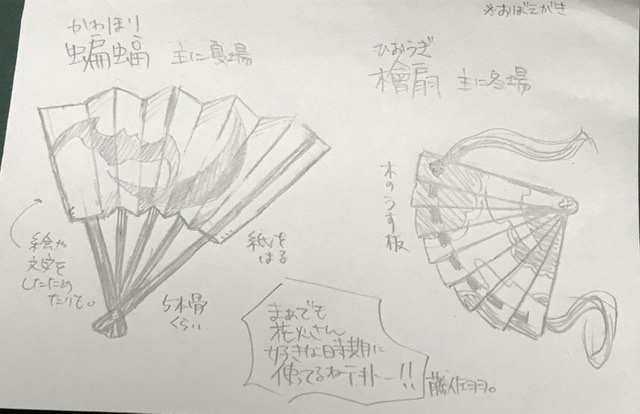 ※おぼえがき
かわほり
蝙蝠 主に夏場
ひおうぎ
檜扇 主に冬場
木のうす板
絵や
文字を
したため
たりも。
紙を
はる
5本骨
くらい
まぁでも
花火さん
好きな時期に
使ってるねテキトー!!